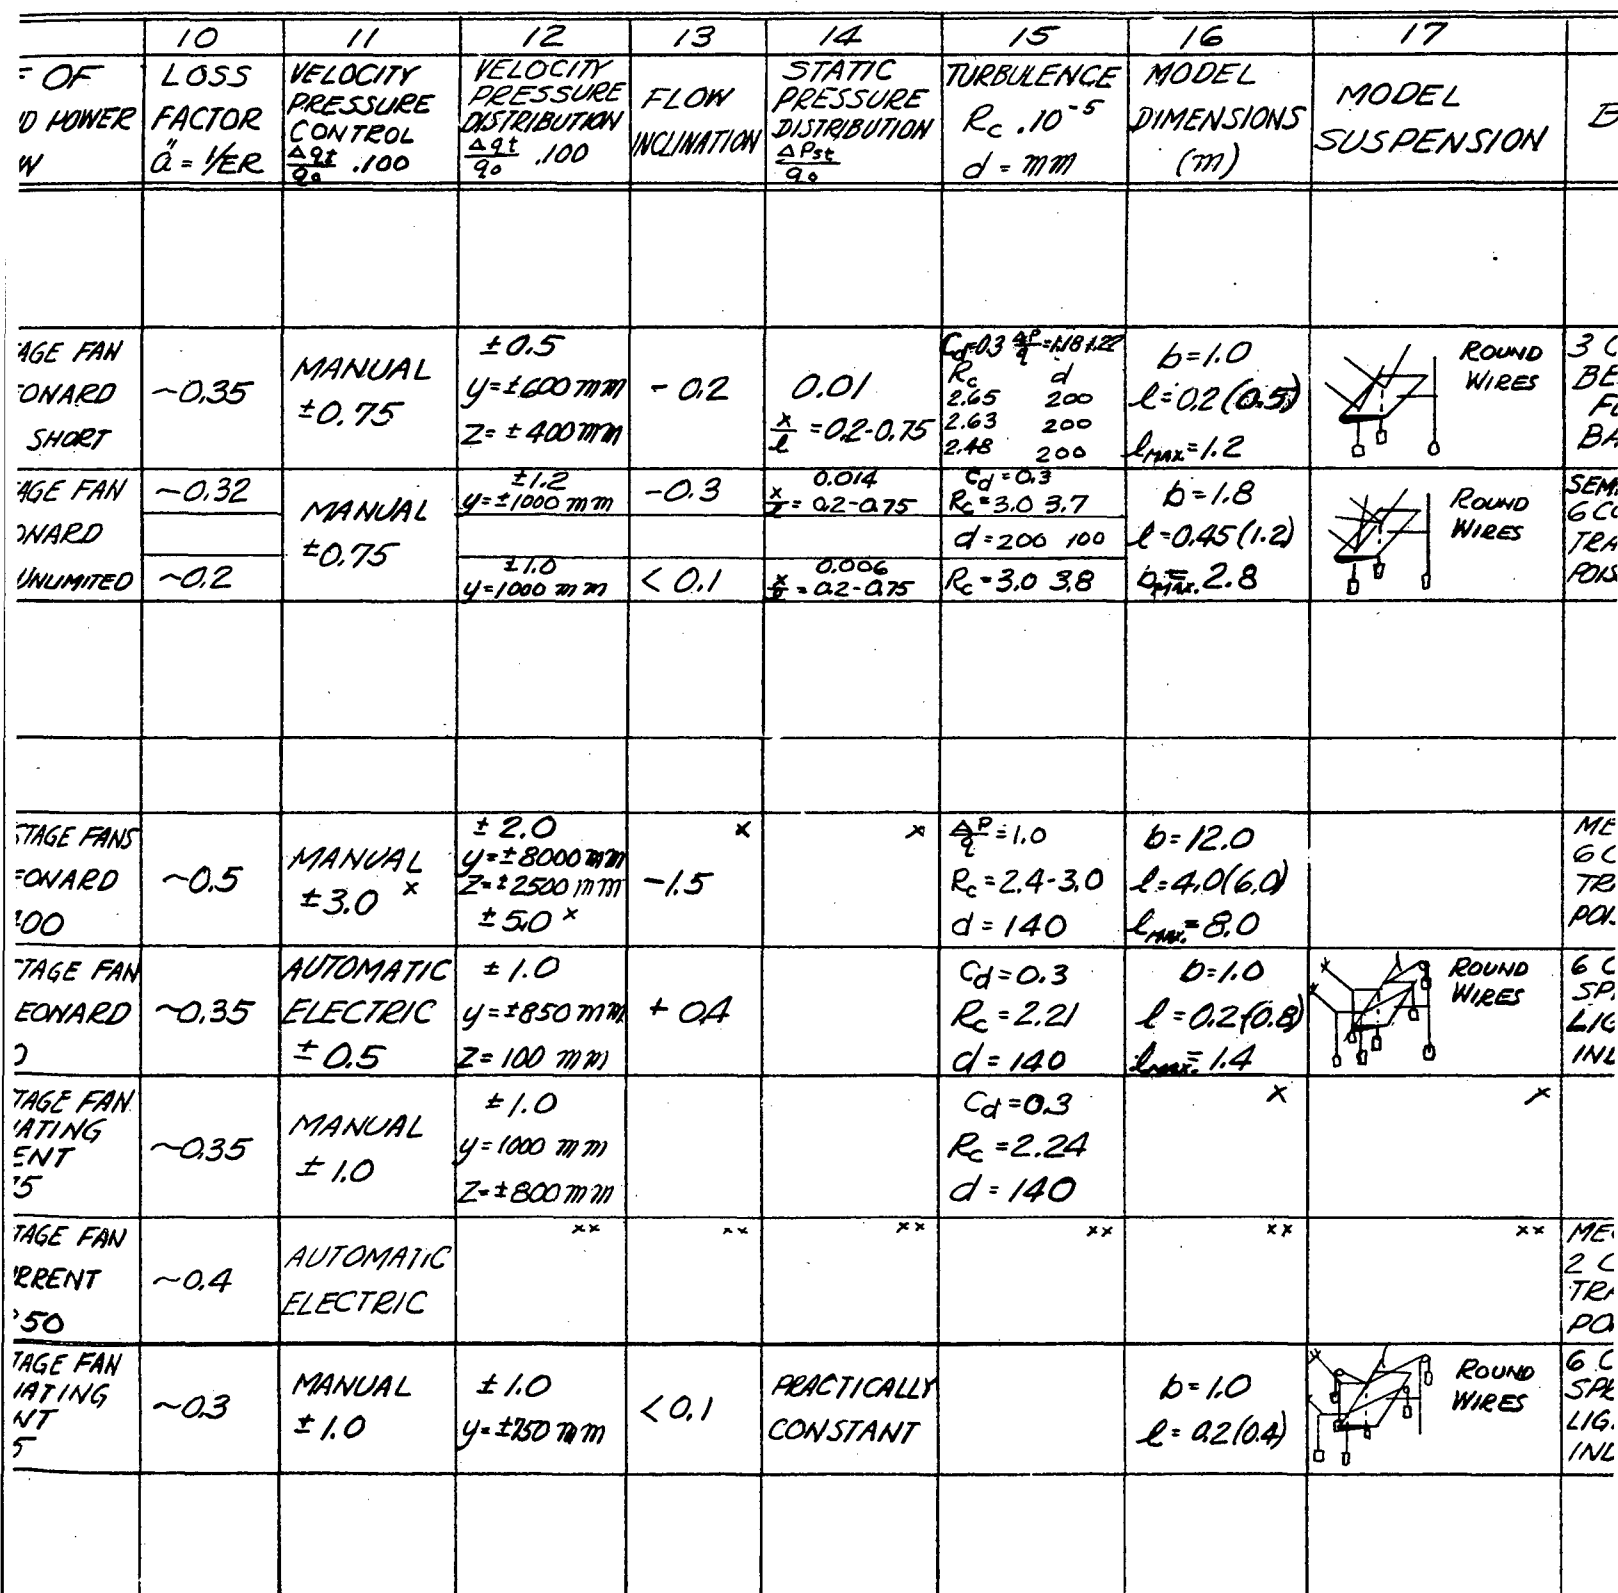 10 11 12 13 14 15 16 17
OF LOSS VELOCITY VELOCITY FLOW STATIC TURBULENCE MODEL MODEL
HOWER FACTOR PRESSURE PRESSURE INCLINATION PRESSURE Rc .10⁻⁵ DIMENSIONS SUSPENSION
W ä = 1/ER CONTROL DISTRIBUTION DISTRIBUTION d = mm (m)
Δqt/q₀ .100 Δqt/q₀ .100 ΔPst/q₀
AGE FAN
ONARD
SHORT
~0.35
MANUAL
±0.75
±0.5
y=±600 mm
Z=±400 mm
-0.2
0.01
x/l = 0.2-0.75
Cd=0.3 ΔP/q=1.18 1.22
Rc d
2.65 200
2.63 200
2.48 200
b=1.0
l=0.2(0.5)
lMAX=1.2
ROUND
WIRES
3 C
BE
BA
AGE FAN
ONARD
UNLIMITED
~0.32
~0.2
MANUAL
±0.75
±1.2
y=±1000 mm
±1.0
y=1000 mm
-0.3
<0.1
0.014
= 0.2-0.75
0.006
= 0.2-0.75
Cd=0.3
Rc=3.0 3.7
d=200 100
Rc=3.0 3.8
b=1.8
l=0.45(1.2)
bMAX.=2.8
ROUND
WIRES
SEM
6 CO
TRA
POIS
STAGE FANS
EONARD
00
~0.5
MANUAL
±3.0 x
±2.0
y=±8000 mm
Z=±2500 mm
±5.0 x
x
-1.5
x
ΔP/q=1.0
Rc=2.4-3.0
d=140
b=12.0
l=4.0(6.0)
lMAX.=8.0
ME
6 C
TR
POI
TAGE FAN
EONARD
~0.35
AUTOMATIC
ELECTRIC
±0.5
±1.0
y=±850 mm
Z=100 mm
+0.4
Cd=0.3
Rc=2.21
d=140
b=1.0
l=0.2(0.8)
lMAX.=1.4
ROUND
WIRES
6 C
SP
LIG
INL
TAGE FAN
ATING
ENT
5
~0.35
MANUAL
±1.0
±1.0
y=1000 mm
Z=±800 mm
Cd=0.3
Rc=2.24
d=140
x
x
TAGE FAN
RRENT
50
~0.4
AUTOMATIC
ELECTRIC
xx xx xx xx xx xx
ME
2 C
TRA
PO
TAGE FAN
ATING
NT
5
~0.3
MANUAL
±1.0
±1.0
y=±750 mm
<0.1
PRACTICALLY
CONSTANT
b=1.0
l=0.2(0.4)
ROUND
WIRES
6 C
SPR
LIG.
INL